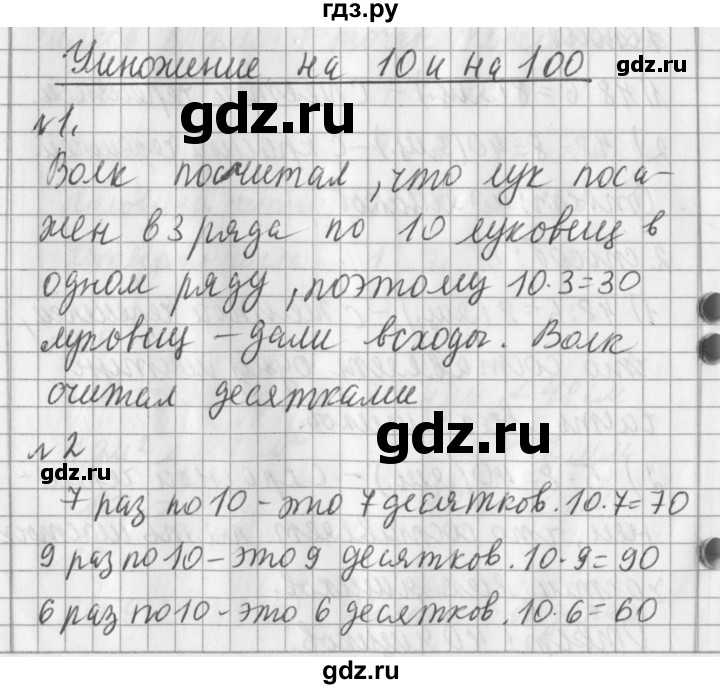 гдз.ру
Умножение на 10 и на 100
gdz.ru
gdz.ru
№1.
Волк посчитал, что лук поса-
жен в 3 ряда по 10 луковец в
одном ряду, поэтому 10·3=30
луковец – дали всходы. Волк
считал десятками
gdz.ru
№2
gdz.ru
7 раз по 10 – это 7 десятков. 10·7=70
9 раз по 10 – это 9 десятков. 10·9=90
6 раз по 10 – это 6 десятков. 10·6=60
gdz.ru